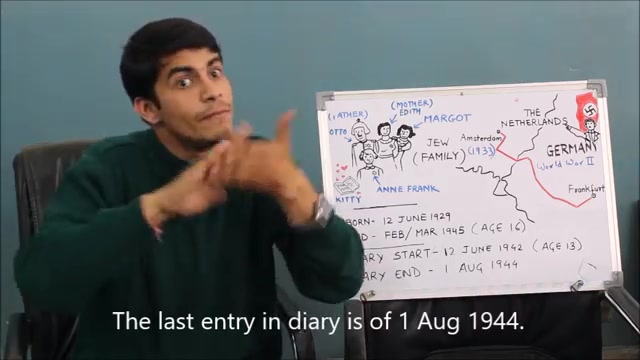 (MOTHER)
EDITH
OTTO
MARGOT
JEW
(FAMILY)
ANNE FRANK
KITTY
THE
NETHERLANDS
Amsterdam
(1933)
GERMANY
World War II
Frankfurt
BORN- 12 JUNE 1929
- FEB/ MAR 1945 (AGE 16)
START- 12 JUNE 1942 (AGE 13)
END - 1 AUG 1944
The last entry in diary is of 1 Aug 1944.